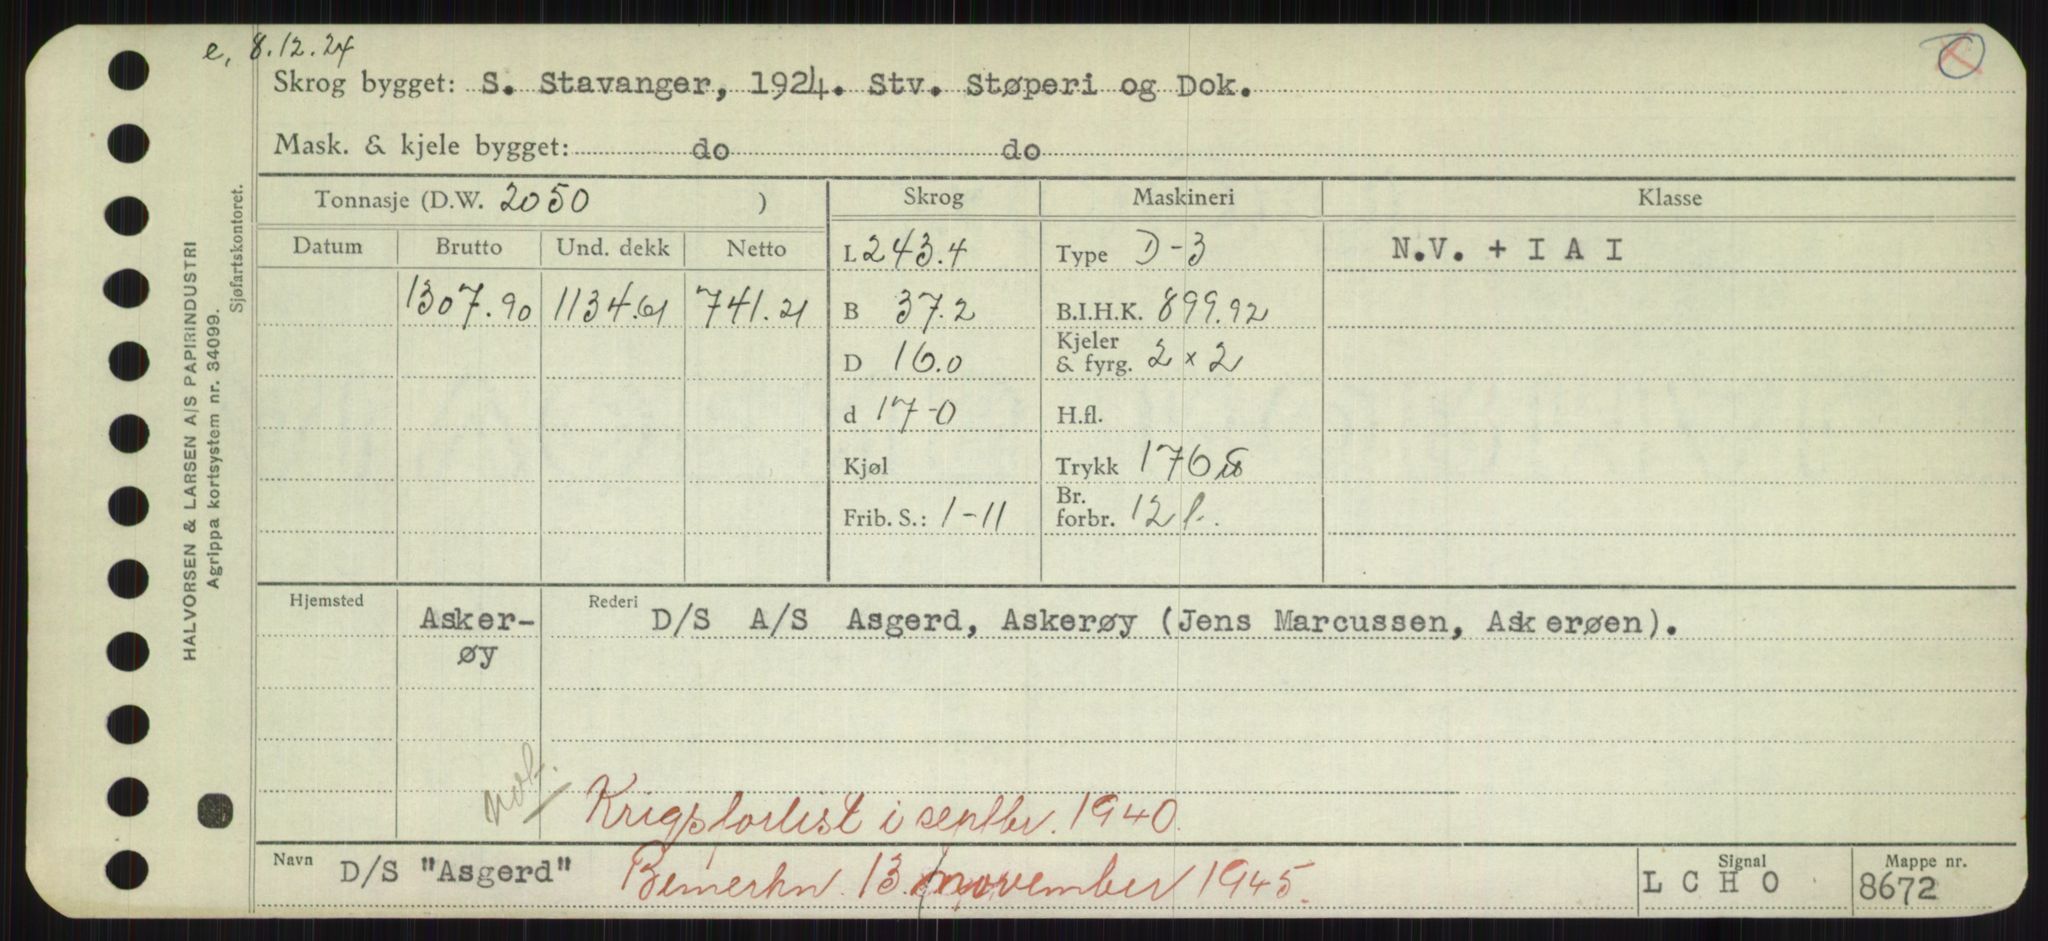 e, 8.12.24
Skrog bygget: S. Stavanger, 1924. Stv. Støperi og Dok.
Mask. & kjele bygget: do do
Tonnasje (D.W. 2050 )
Skrog
Maskineri
Klasse
Datum Brutto Und. dekk Netto
1307.90 1134.61 741.21
L 243.4
B 37.2
D 16.0
d 17-0
Kjøl
Frib. S.: 1-11
Type D-3
B.I.H.K. 899.92
Kjeler
& fyrg. 2 x 2
H.fl.
Trykk 176
Br.
forbr. 12
N.V. + I A I
Hjemsted
Asker-
øy
Rederi D/S A/S Asgerd, Askerøy (Jens Marcussen, Askerøen).
not.
Krigsforlist i septbr. 1940.
Navn D/S "Asgerd" Bemerkn. 13 november 1945.
Signal
L C H O
Mappe nr.
8672
HALVORSEN & LARSEN A/S PAPIRINDUSTRI
Agrippa kortsystem nr. 34099.
Sjøfartskontoret.